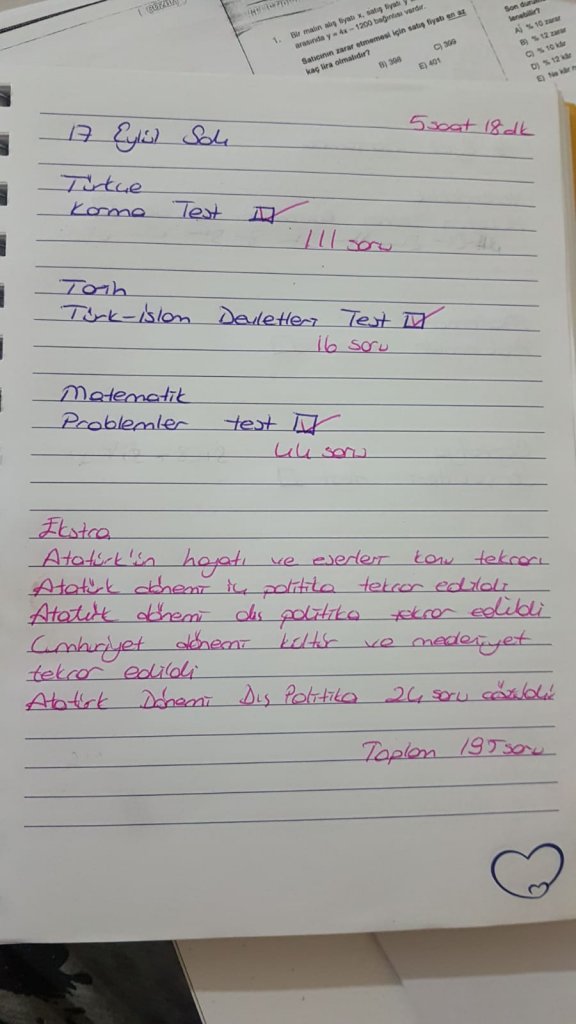 1. Bir malın alış fiyatı x, satış fiyatı y
arasında y = 4x – 1200 bağıntısı vardır.
Satıcının zarar etmemesi için satış fiyatı en az
kaç lira olmalıdır?
B) 398
C) 399
E) 401
Son
lenebilir?
A) % 10 zarar
B) % 12 zarar
C) % 10 kâr
D) % 12 kâr
E) Ne kâr
17 Eylül Salı
5 saat 18 dk
Türkçe
Karma Test
111 soru
Tarih
Türk-İslam Devletleri Test
16 soru
Matematik
Problemler test
44 soru
Ekstra
Atatürk'ün hayatı ve eserleri konu tekrarı
Atatürk dönemi iç politika tekrar edildi
Atatürk dönemi dış politika tekrar edildi
Cumhuriyet dönemi kültür ve medeniyet
tekrar edildi
Atatürk Dönemi Dış Politika 24 soru çözüldü
Toplam 195 soru